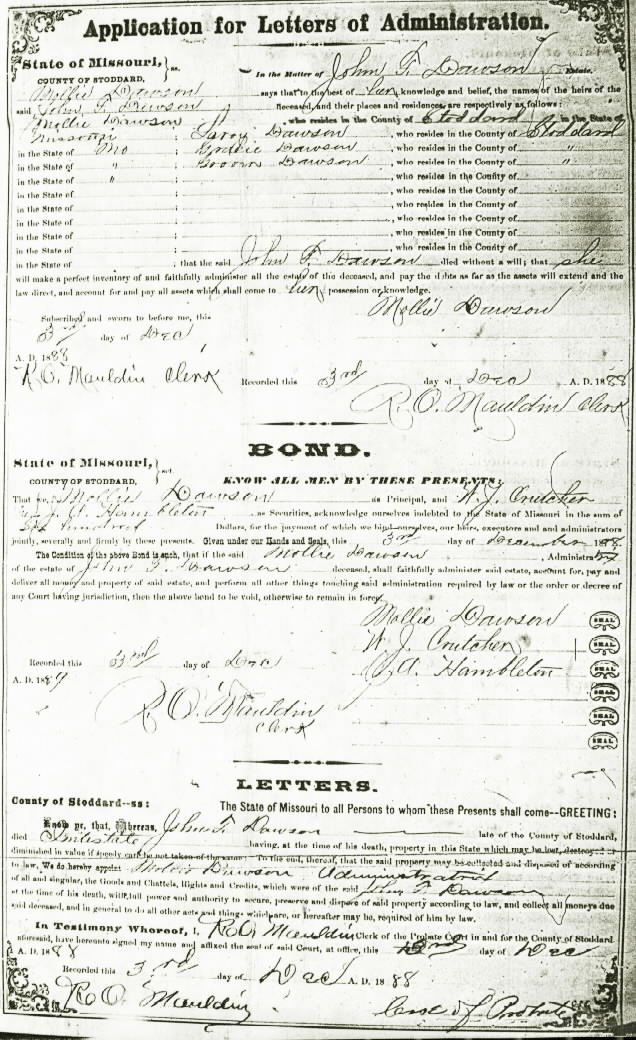 Application for Letters of Administration.
State of Missouri, } ss.
COUNTY OF STODDARD,
In the Matter of John T. Dawson Estate.
Mollie Dawson says that to the best of her knowledge and belief, the names of the heirs of the
said John T Dawson deceased, and their places and residences, are respectively as follows:
Mollie Dawson, who resides in the County of Stoddard in the State of
Missouri; Dawson, who resides in the County of Stoddard
in the State of Mo; Dawson, who resides in the County of "
in the State of "; Dawson, who resides in the County of "
in the State of "; , who resides in the County of
in the State of ; , who resides in the County of
in the State of ; , who resides in the County of
in the State of ; , who resides in the County of
in the State of ; , who resides in the County of
in the State of ; that the said John T. Dawson died without a will; that she
will make a perfect inventory of and faithfully administer all the estate of the deceased, and pay the debts as far as the assets will extend and the
law direct, and account for and pay all assets which shall come to her possession or knowledge.
Mollie Dawson
Subscribed and sworn to before me, this
3rd day of Dec
A. D. 1888
R O. Mauldin Clerk
Recorded this 3rd day of Dec A. D. 1888
R. O. Mauldin Clerk
BOND.
State of Missouri, } sct.
COUNTY OF STODDARD,
KNOW ALL MEN BY THESE PRESENTS:
That we, Mollie Dawson as Principal, and W. J. Crutcher
Hambleton as Securities, acknowledge ourselves indebted to the State of Missouri in the sum of
hundred Dollars, for the payment of which we bind ourselves, our heirs, executors and administrators
jointly, severally and firmly by these presents. Given under our Hands and Seals, this 3rd day of December 1888
The Condition of the above Bond is such, that if the said Mollie Dawson, Administratrix
of the estate of John T. Dawson deceased, shall faithfully administer said estate, account for, pay and
deliver all money and property of said estate, and perform all other things touching said administration required by law or the order or decree
of any Court having jurisdiction, then the above bond to be void, otherwise to remain in force.
Mollie Dawson SEAL
W. J. Crutcher SEAL
A. Hambleton SEAL
SEAL
SEAL
SEAL
Recorded this 3rd day of Dec
A. D. 1889
R. O. Mauldin
Clerk
LETTERS.
County of Stoddard--ss:
The State of Missouri to all Persons to whom these Presents shall come--GREETING:
Know ye, that, Whereas, John T. Dawson late of the County of Stoddard,
died Intestate, having, at the time of his death, property in this State which may be lost, destroyed or
diminished in value if speedy care be not taken of the same: To the end, therefore, that the said property may be collected and disposed of according
to law, We do hereby appoint Dawson
of all and singular, the Goods and Chattels, Rights and Credits, which were of the said John T Dawson
at the time of his death, with full power and authority to secure, preserve and dispose of said property according to law, and collect all moneys due
said deceased, and in general to do all other acts and things which are, or hereafter may be, required of him by law.
In Testimony Whereof, I, R O Mauldin Clerk of the Probate Court in and for the County of Stoddard
aforesaid, have hereunto signed my name and affixed the seal of said Court, at office, this 3rd day of Dec
A. D. 1888
Recorded this 3rd day of Dec A. D. 1888
R O Mauldin of Probate